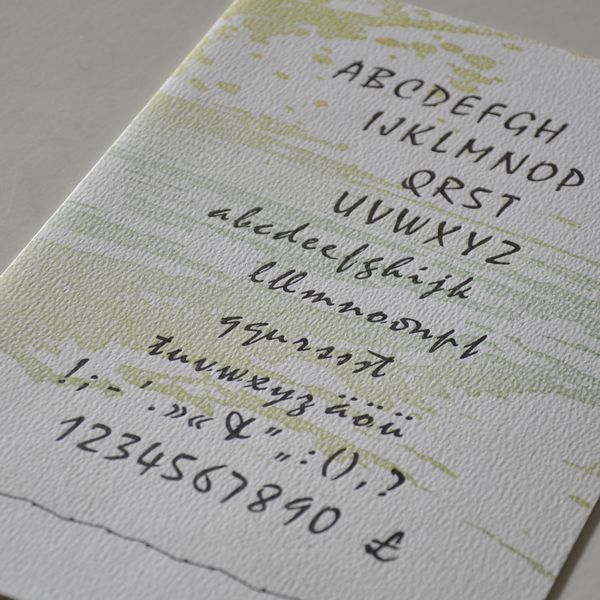 ABCDEFGH
IJKLMNOP
QRST
UVWXYZ
abcdeefghijk
lllmnoonpl
qqurssst
tuvwxyz äöü
!;-'.»«&"„:(),?
1234567890 £